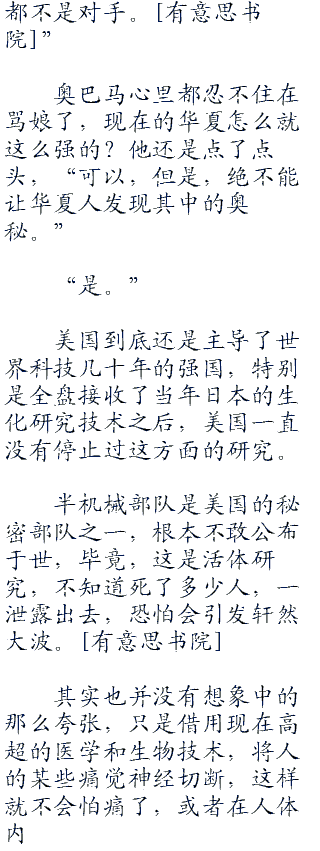 都不是对手。[有意思书
院]”
奥巴马心里都忍不住在
骂娘了，现在的华夏怎么就
这么强的？他还是点了点
头，“可以，但是，绝不能
让华夏人发现其中的奥
秘。”
“是。”
美国到底还是主导了世
界科技几十年的强国，特别
是全盘接收了当年日本的生
化研究技术之后，美国一直
没有停止过这方面的研究。
半机械部队是美国的秘
密部队之一，根本不敢公布
于世，毕竟，这是活体研
究，不知道死了多少人，一
泄露出去，恐怕会引发轩然
大波。[有意思书院]
其实也并没有想象中的
那么夸张，只是借用现在高
超的医学和生物技术，将人
的某些痛觉神经切断，这样
就不会怕痛了，或者在人体
内